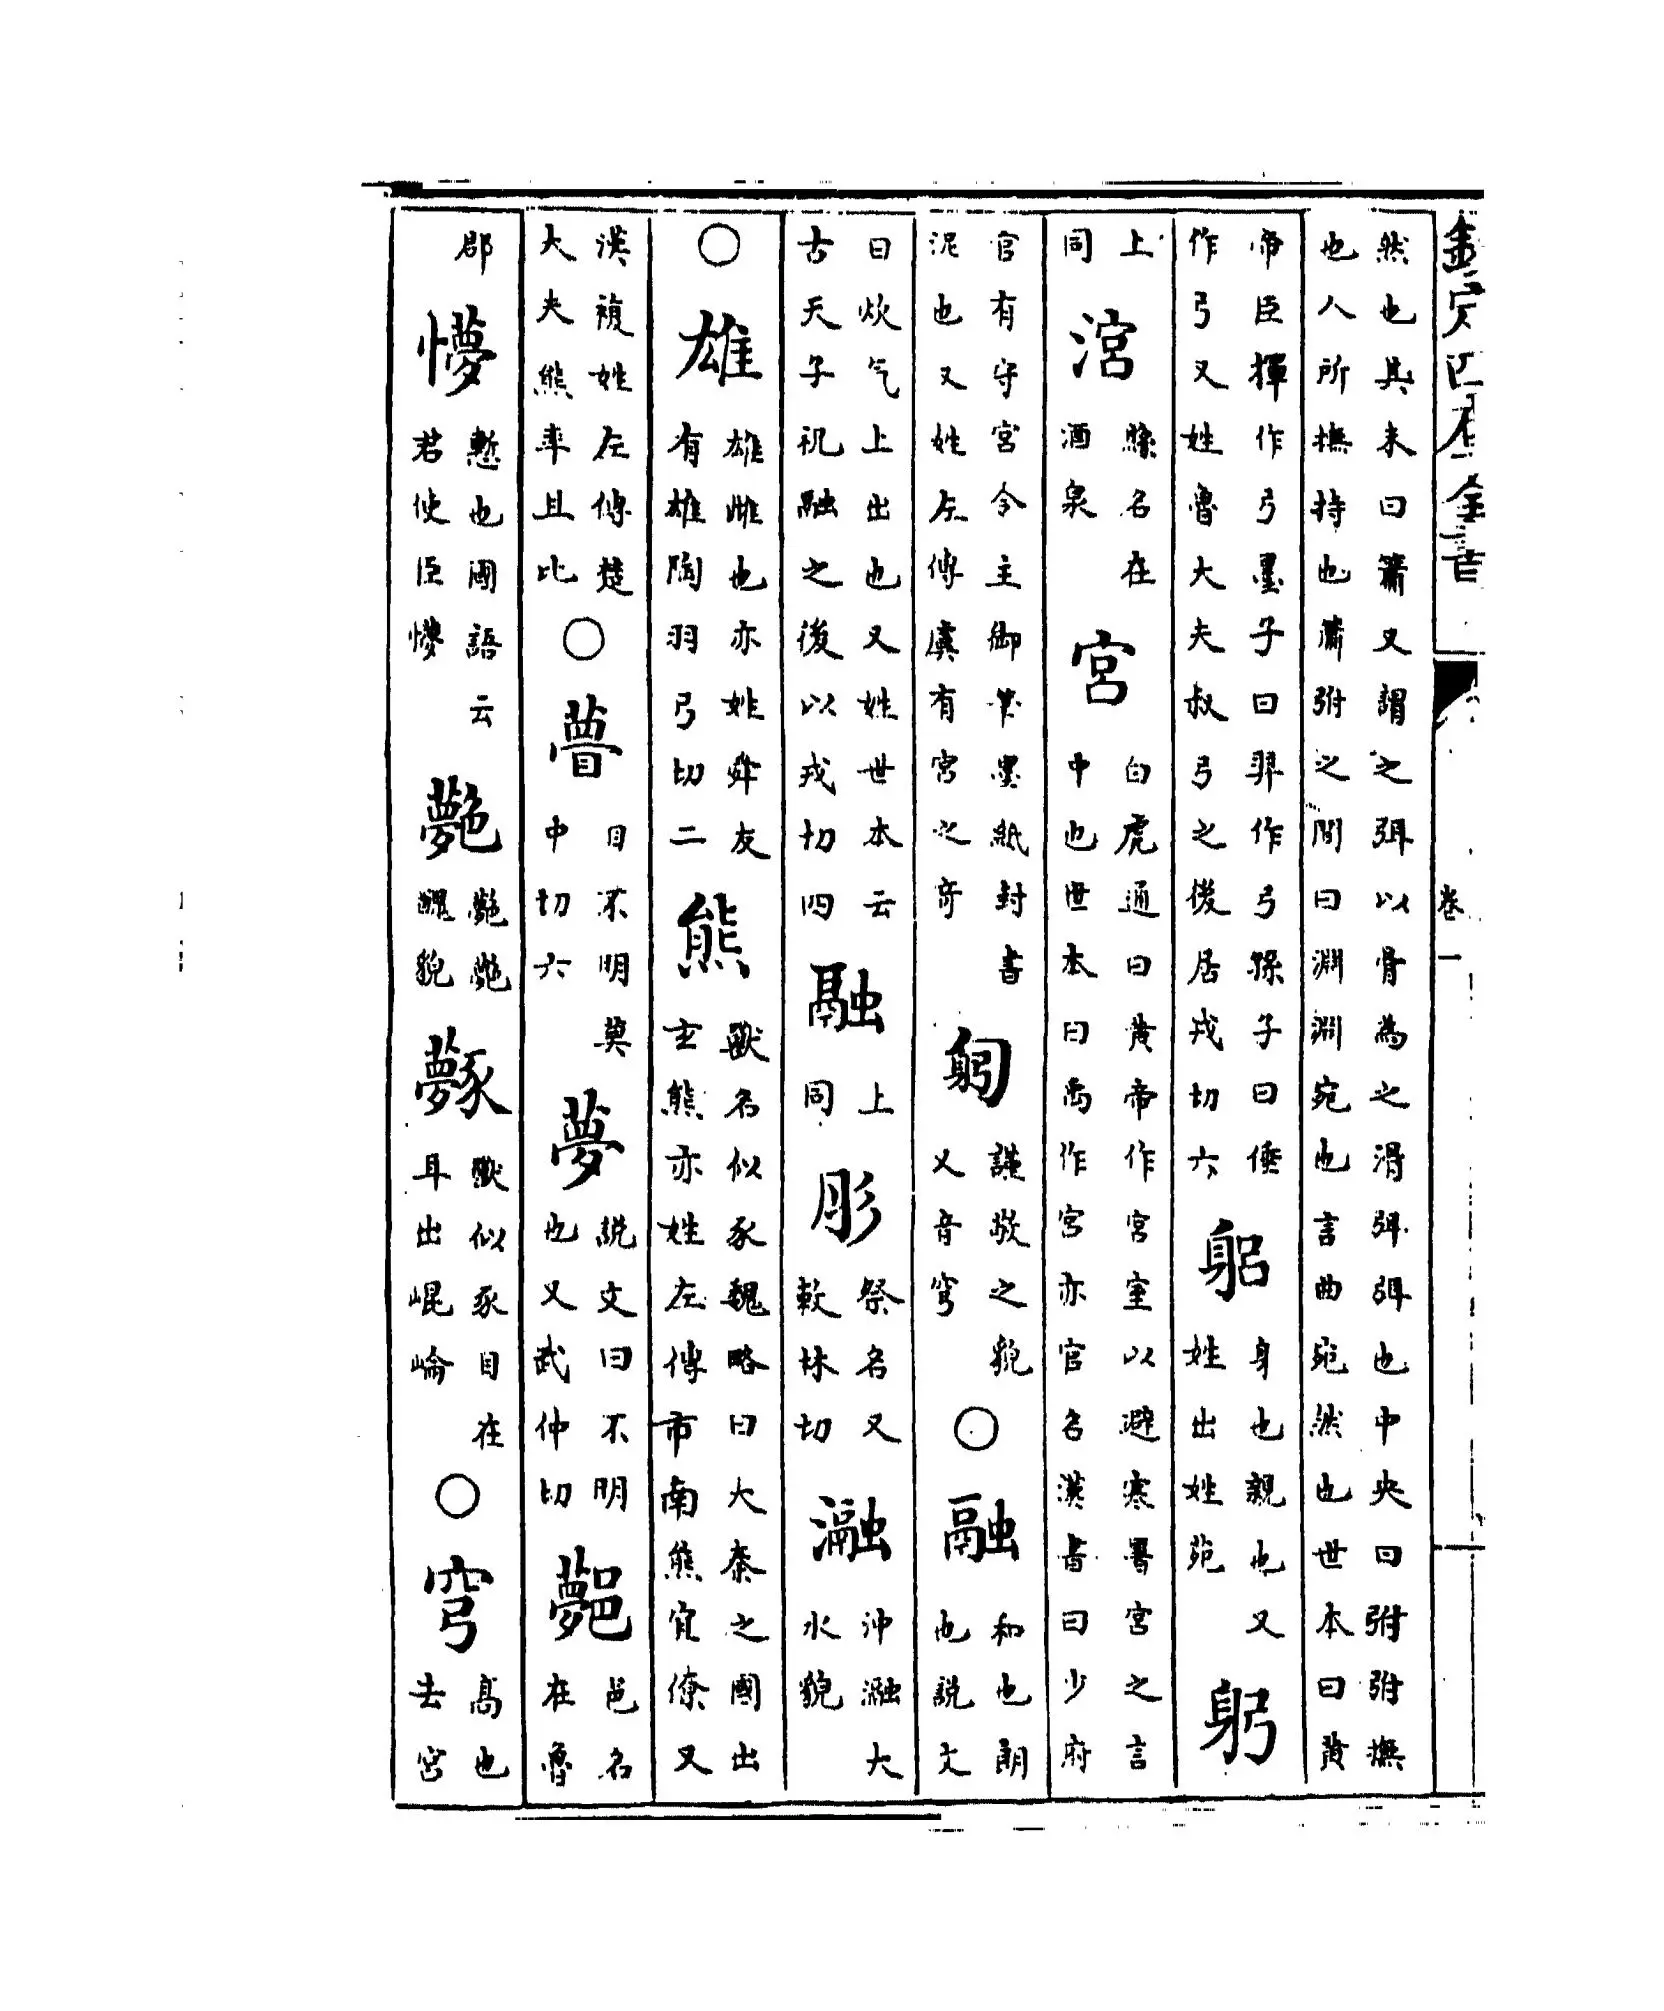 欽定四庫全書
卷一
然也其末曰簫又謂之弭以骨為之滑弭弭也中央曰弣弣撫
也人所撫持也簫弣之間曰淵淵宛也言曲宛然也世本曰黄
帝臣揮作弓墨子曰羿作弓孫子曰倕作弓又姓魯大夫叔弓之後居戎切六 躳 身也親也又姓出姓苑 躬
上同 𣹟 縣名在酒泉 宮 白虎通曰黄帝作宮室以避寒暑宮之言中也世本曰禹作宮亦官名漢書曰少府
官有守宮令主御筆墨紙封書泥也又姓左傳虞有宮之奇 匑 謹敬之貌又音穹 ○ 融 和也朗也説文
曰炊气上出也又姓世本云古天子祝融之後以戎切四 融 上同 肜 祭名又敕林切 瀜 沖瀜大水貌
○ 雄 雄雌也亦姓舜友有雄陶羽弓切二 熊 獸名似豕魏略曰大秦之國出玄熊亦姓左傳市南熊宜僚又
漢複姓左傳楚大夫熊率且比 ○ 瞢 目不明莫中切六 夢 説文曰不明也又武仲切 鄸 邑名在魯
郡 懜 慙也國語云君使臣懜 𦫰 𦫰𦫰醜貌 獸似豕目在耳出崐崘 ○ 穹 高也去宮